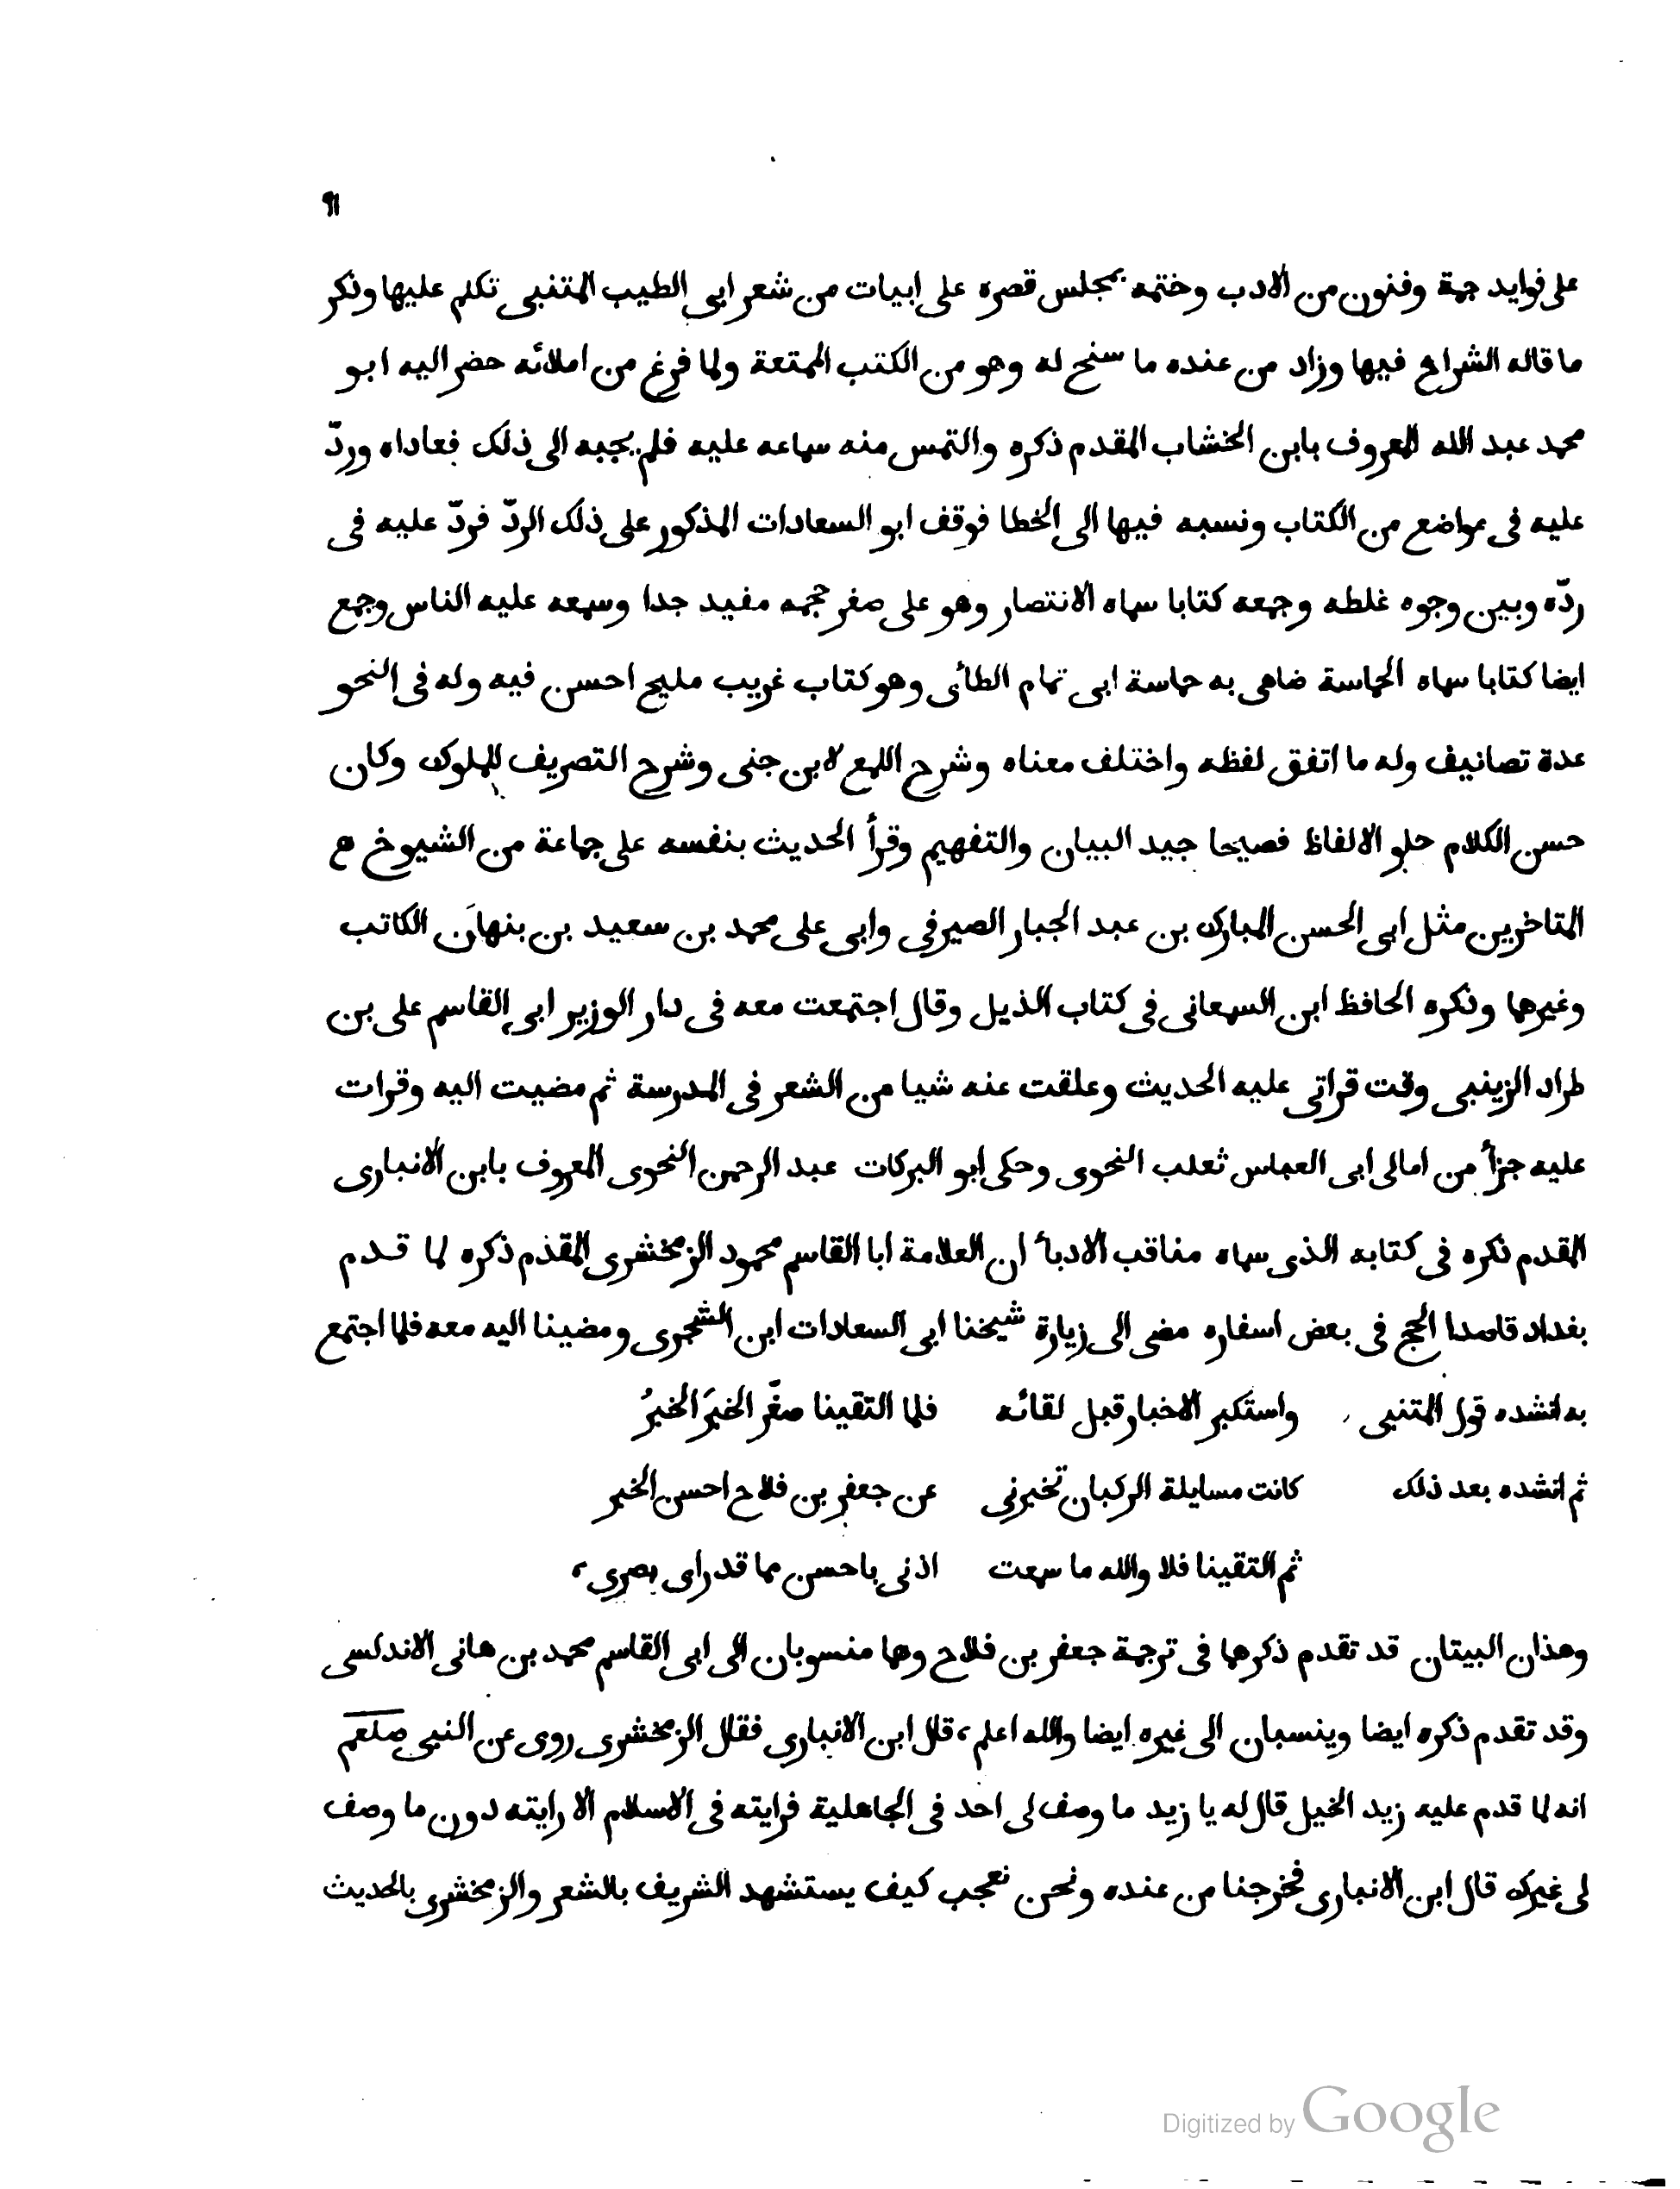 ٩١
على فوايد جمة وفنون من الادب وختمه بمجلس قصره على ابيات من شعر ابى الطيب المتنبى تكلم عليها وذكر
ما قاله الشراح فيها وزاد من عنده ما سنح له وهو من الكتب الممتعة ولما فرغ من املائه حضر اليه ابو
محمد عبد الله المعروف بابن الخشاب المقدم ذكره والتمس منه سماعه عليه فلم يجبه الى ذلك فعاداه وردّ
عليه فى مواضع من الكتاب ونسبه فيها الى الخطا فوقف ابو السعادات المذكور على ذلك الردّ فردّ عليه فى
ردّه وبين وجوه غلطه وجمعه كتابا سماه الانتصار وهو على صغر حجمه مفيد جدا وسمعه عليه الناس وجمع
ايضا كتابا سماه الحماسة ضاهى به حماسة ابى تمام الطائى وهو كتاب غريب مليح احسن فيه وله فى النحو
عدة تصانيف وله ما اتفق لفظه واختلف معناه وشرح اللمع لابن جنى وشرح التصريف الملوكى وكان
حسن الكلام حلو الالفاظ فصيحا جيد البيان والتفهيم وقرأ الحديث بنفسه على جماعة من الشيوخ
المتاخرين مثل ابى الحسن المبارك بن عبد الجبار الصيرفى وابى على محمد بن سعيد بن بنهان الكاتب
وغيرهما وذكره الحافظ ابن السمعانى فى كتاب الذيل وقال اجتمعت معه فى دار الوزير ابى القاسم على بن
طراد الزينبى وقت قراتى عليه الحديث وعلقت عنه شيا من الشعر فى المدرسة ثم مضيت اليه وقرات
عليه جزأ من امالى ابى العباس ثعلب النحوى وحكى ابو البركات عبد الرحمن النحوى المعروف بابن الانبارى
المقدم ذكره فى كتابه الذى سماه مناقب الادبأ ان العلامة ابا القاسم محمود الزمخشرى المقدم ذكره لما قدم
بغداد قاصدا الحج فى بعض اسفاره مضى الى زيارة شيخنا ابى السعادات ابن الشجرى ومضينا اليه معه فلما اجتمع
به انشده قول المتنبى واستكبر الاخبار قبل لقائه فلما التقينا صغّر الخبَرَ الخبرُ
ثم انشده بعد ذلك كانت مسايلة الركبان تخبرنى عن جعفر بن فلاح احسن الخبر
ثم التقينا فلا والله ما سمعت اذنى باحسن مما قد راى بصرى،
وهذان البيتان قد تقدم ذكرهما فى ترجمة جعفر بن فلاح وهما منسوبان الى ابى القاسم محمد بن هانى الاندلسى
وقد تقدم ذكره ايضا وينسبان الى غيره ايضا والله اعلم، قال ابن الانبارى فقال الزمخشرى روى عن النبى صلعم
انه لما قدم عليه زيد الخيل قال له يا زيد ما وصف لى احد فى الجاهلية فرايته فى الاسلام الا رايته دون ما وصف
لى غيرك قال ابن الانبارى فخرجنا من عنده ونحن نعجب كيف يستشهد الشريف بالشعر والزمخشرى بالحديث
Digitized by Google